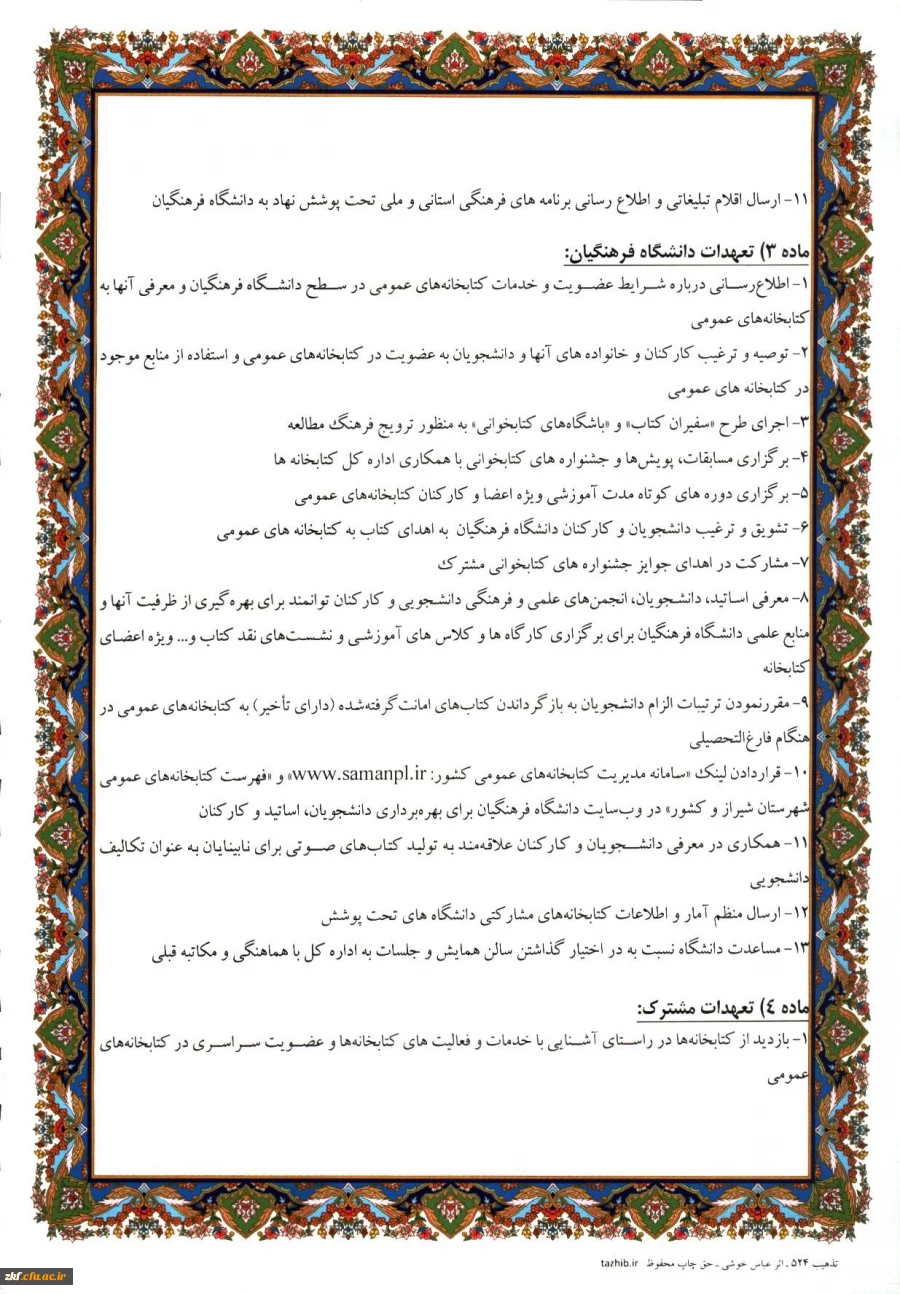 ۱۱- ارسال اقلام تبلیغاتی و اطلاع رسانی برنامه های فرهنگی استانی و ملی تحت پوشش نهاد به دانشگاه فرهنگیان
ماده ۳) تعهدات دانشگاه فرهنگیان:
۱- اطلاع‌رسانی درباره شرایط عضویت و خدمات کتابخانه‌های عمومی در سطح دانشگاه فرهنگیان و معرفی آنها به
کتابخانه‌های عمومی
۲- توصیه و ترغیب کارکنان و خانواده های آنها و دانشجویان به عضویت در کتابخانه‌های عمومی و استفاده از منابع موجود
در کتابخانه های عمومی
۳- اجرای طرح «سفیران کتاب» و «باشگاه‌های کتابخوانی» به منظور ترویج فرهنگ مطالعه
۴- برگزاری مسابقات، پویش‌ها و جشنواره های کتابخوانی با همکاری اداره کل کتابخانه ها
۵- برگزاری دوره های کوتاه مدت آموزشی ویژه اعضا و کارکنان کتابخانه‌های عمومی
۶- تشویق و ترغیب دانشجویان و کارکنان دانشگاه فرهنگیان به اهدای کتاب به کتابخانه های عمومی
۷- مشارکت در اهدای جوایز جشنواره های کتابخوانی مشترک
۸- معرفی اساتید، دانشجویان، انجمن‌های علمی و فرهنگی دانشجویی و کارکنان توانمند برای بهره‌گیری از ظرفیت آنها و
منابع علمی دانشگاه فرهنگیان برای برگزاری کارگاه ها و کلاس های آموزشی و نشست‌های نقد کتاب و... ویژه اعضای
کتابخانه
۹- مقررنمودن ترتیبات الزام دانشجویان به بازگرداندن کتاب‌های امانت‌گرفته‌شده (دارای تأخیر) به کتابخانه‌های عمومی در
هنگام فارغ‌التحصیلی
۱۰- قراردادن لینک «سامانه مدیریت کتابخانه‌های عمومی کشور: www.samanpl.ir» و «فهرست کتابخانه‌های عمومی
شهرستان شیراز و کشور» در وب‌سایت دانشگاه فرهنگیان برای بهره‌برداری دانشجویان، اساتید و کارکنان
۱۱- همکاری در معرفی دانشجویان و کارکنان علاقه‌مند به تولید کتاب‌های صوتی برای نابینایان به عنوان تکالیف
دانشجویی
۱۲- ارسال منظم آمار و اطلاعات کتابخانه‌های مشارکتی دانشگاه های تحت پوشش
۱۳- مساعدت دانشگاه نسبت به در اختیار گذاشتن سالن همایش و جلسات به اداره کل با هماهنگی و مکاتبه قبلی
ماده ٤) تعهدات مشترک:
۱- بازدید از کتابخانه‌ها در راستای آشنایی با خدمات و فعالیت های کتابخانه‌ها و عضویت سراسری در کتابخانه‌های
عمومی
تذهیب ۵۲۴ - اثر عباس خوشی - حق چاپ محفوظ tazhib.ir
zkf.cfu.ac.ir